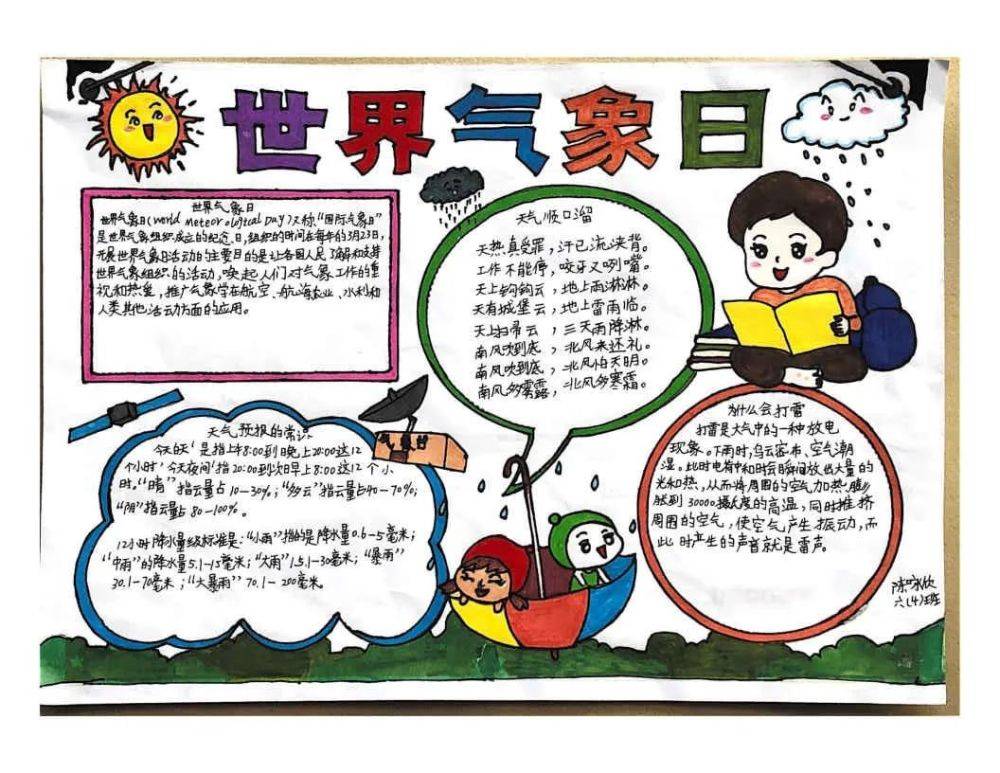 世界气象日
世界气象日
世界气象日(World Meteorological Day)又称"国际气象日"
是世界气象组织成立的纪念日,组织的时间在每年的3月23日,
开展世界气象日活动的主要目的是让各国人民了解和支持
世界气象组织的活动,唤起人们对气象工作的重
视和热爱,推广气象学在航空、航海、水利和
人类其他活动方面的应用。
天气顺口溜
天热真受罪,汗已流浃背。
工作不能停,咬牙又咧嘴。
天上钩钩云,地上雨淋淋。
天有城堡云,地上雷雨临。
天上扫帚云,三天雨降淋。
南风吹到底,北风来还礼。
南风吹到底,北风怕天明。
南风多雾露,北风多寒霜。
天气预报的常识
"今天白天"是指上午8:00到晚上20:00这12
个小时"今天夜间"指20:00到次日早上8:00这12个小
时。"晴"指云量占10-30%;"多云"指云量占40-70%;
"阴"指云量占80-100%。
12小时降水量级标准是:"小雨"指的是降水量0.1-5毫米;
"中雨"的降水量5.1-15毫米;"大雨"15.1-30毫米;"暴雨"
30.1-70毫米;"大暴雨"70.1-200毫米。
气象站
为什么会打雷
打雷是大气中的一种放电
现象。下雨时,乌云密布、空气潮
湿。此时电荷中和时会瞬间放出大量的
光和热,从而将周围的空气加热膨胀
然到30000摄氏度的高温,同时推挤
周围的空气,使空气产生振动,而
此时产生的声音就是雷声。
陈咏欣
六(4)班